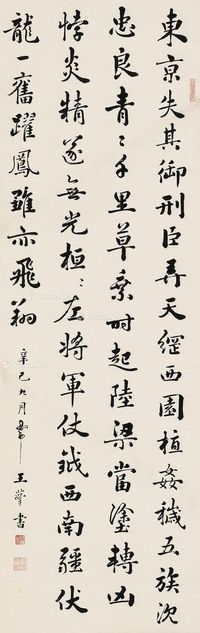 東京失其御刑臣弄天綱西園植姦穢五族沈
忠良青〻千里草乘時起陸梁當塗轉凶
悖炎精遂無光桓〻左將軍仗鉞西南疆伏
龍一奮躍鳳雛亦飛翔
辛巳九月
王肇書